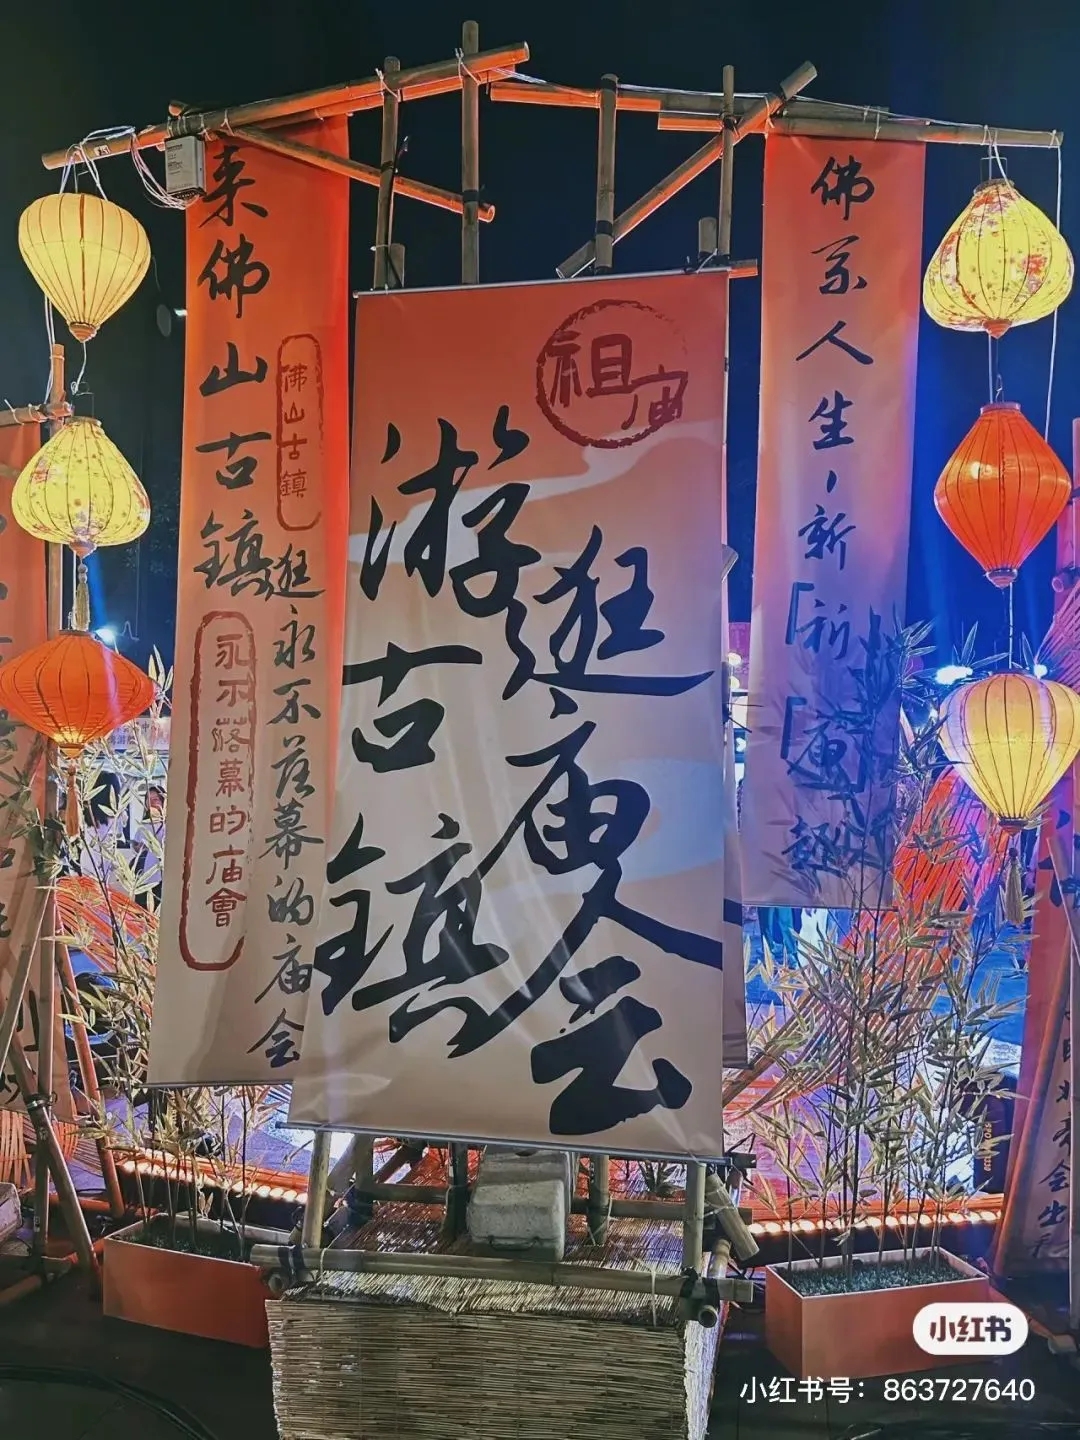 来佛山古鎮
逛永不落幕的庙会
佛山古鎮
永不落幕的庙會
祖庙
游古鎮
逛庙会
佛系人生，新「祈」「庙」趣
小红书
小红书号：863727640